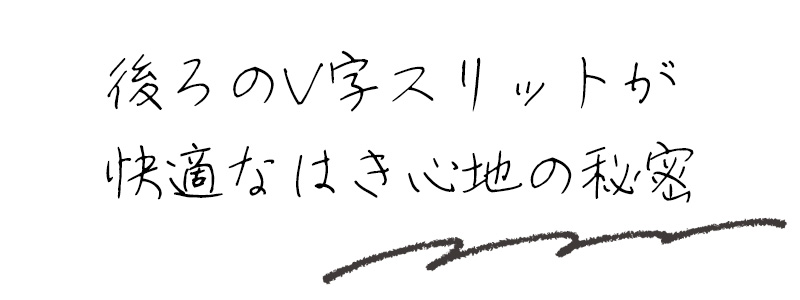 後ろのV字スリットが
快適なはき心地の秘密